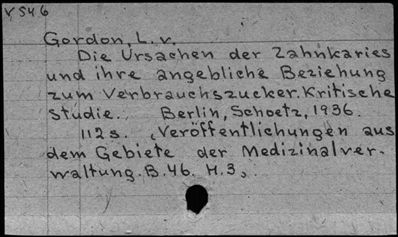 V 546
Gordon, L. v.
Die Ursachen der Zahnkaries
und ihre angebliche Beziehung
zum Verbrauchszucker. Kritische
Studie. Berlin, Schoetz, 1936.
112 s. (Veröffentlichungen aus
dem Gebiete der Medizinalver-
waltung. B. 46. H. 3,